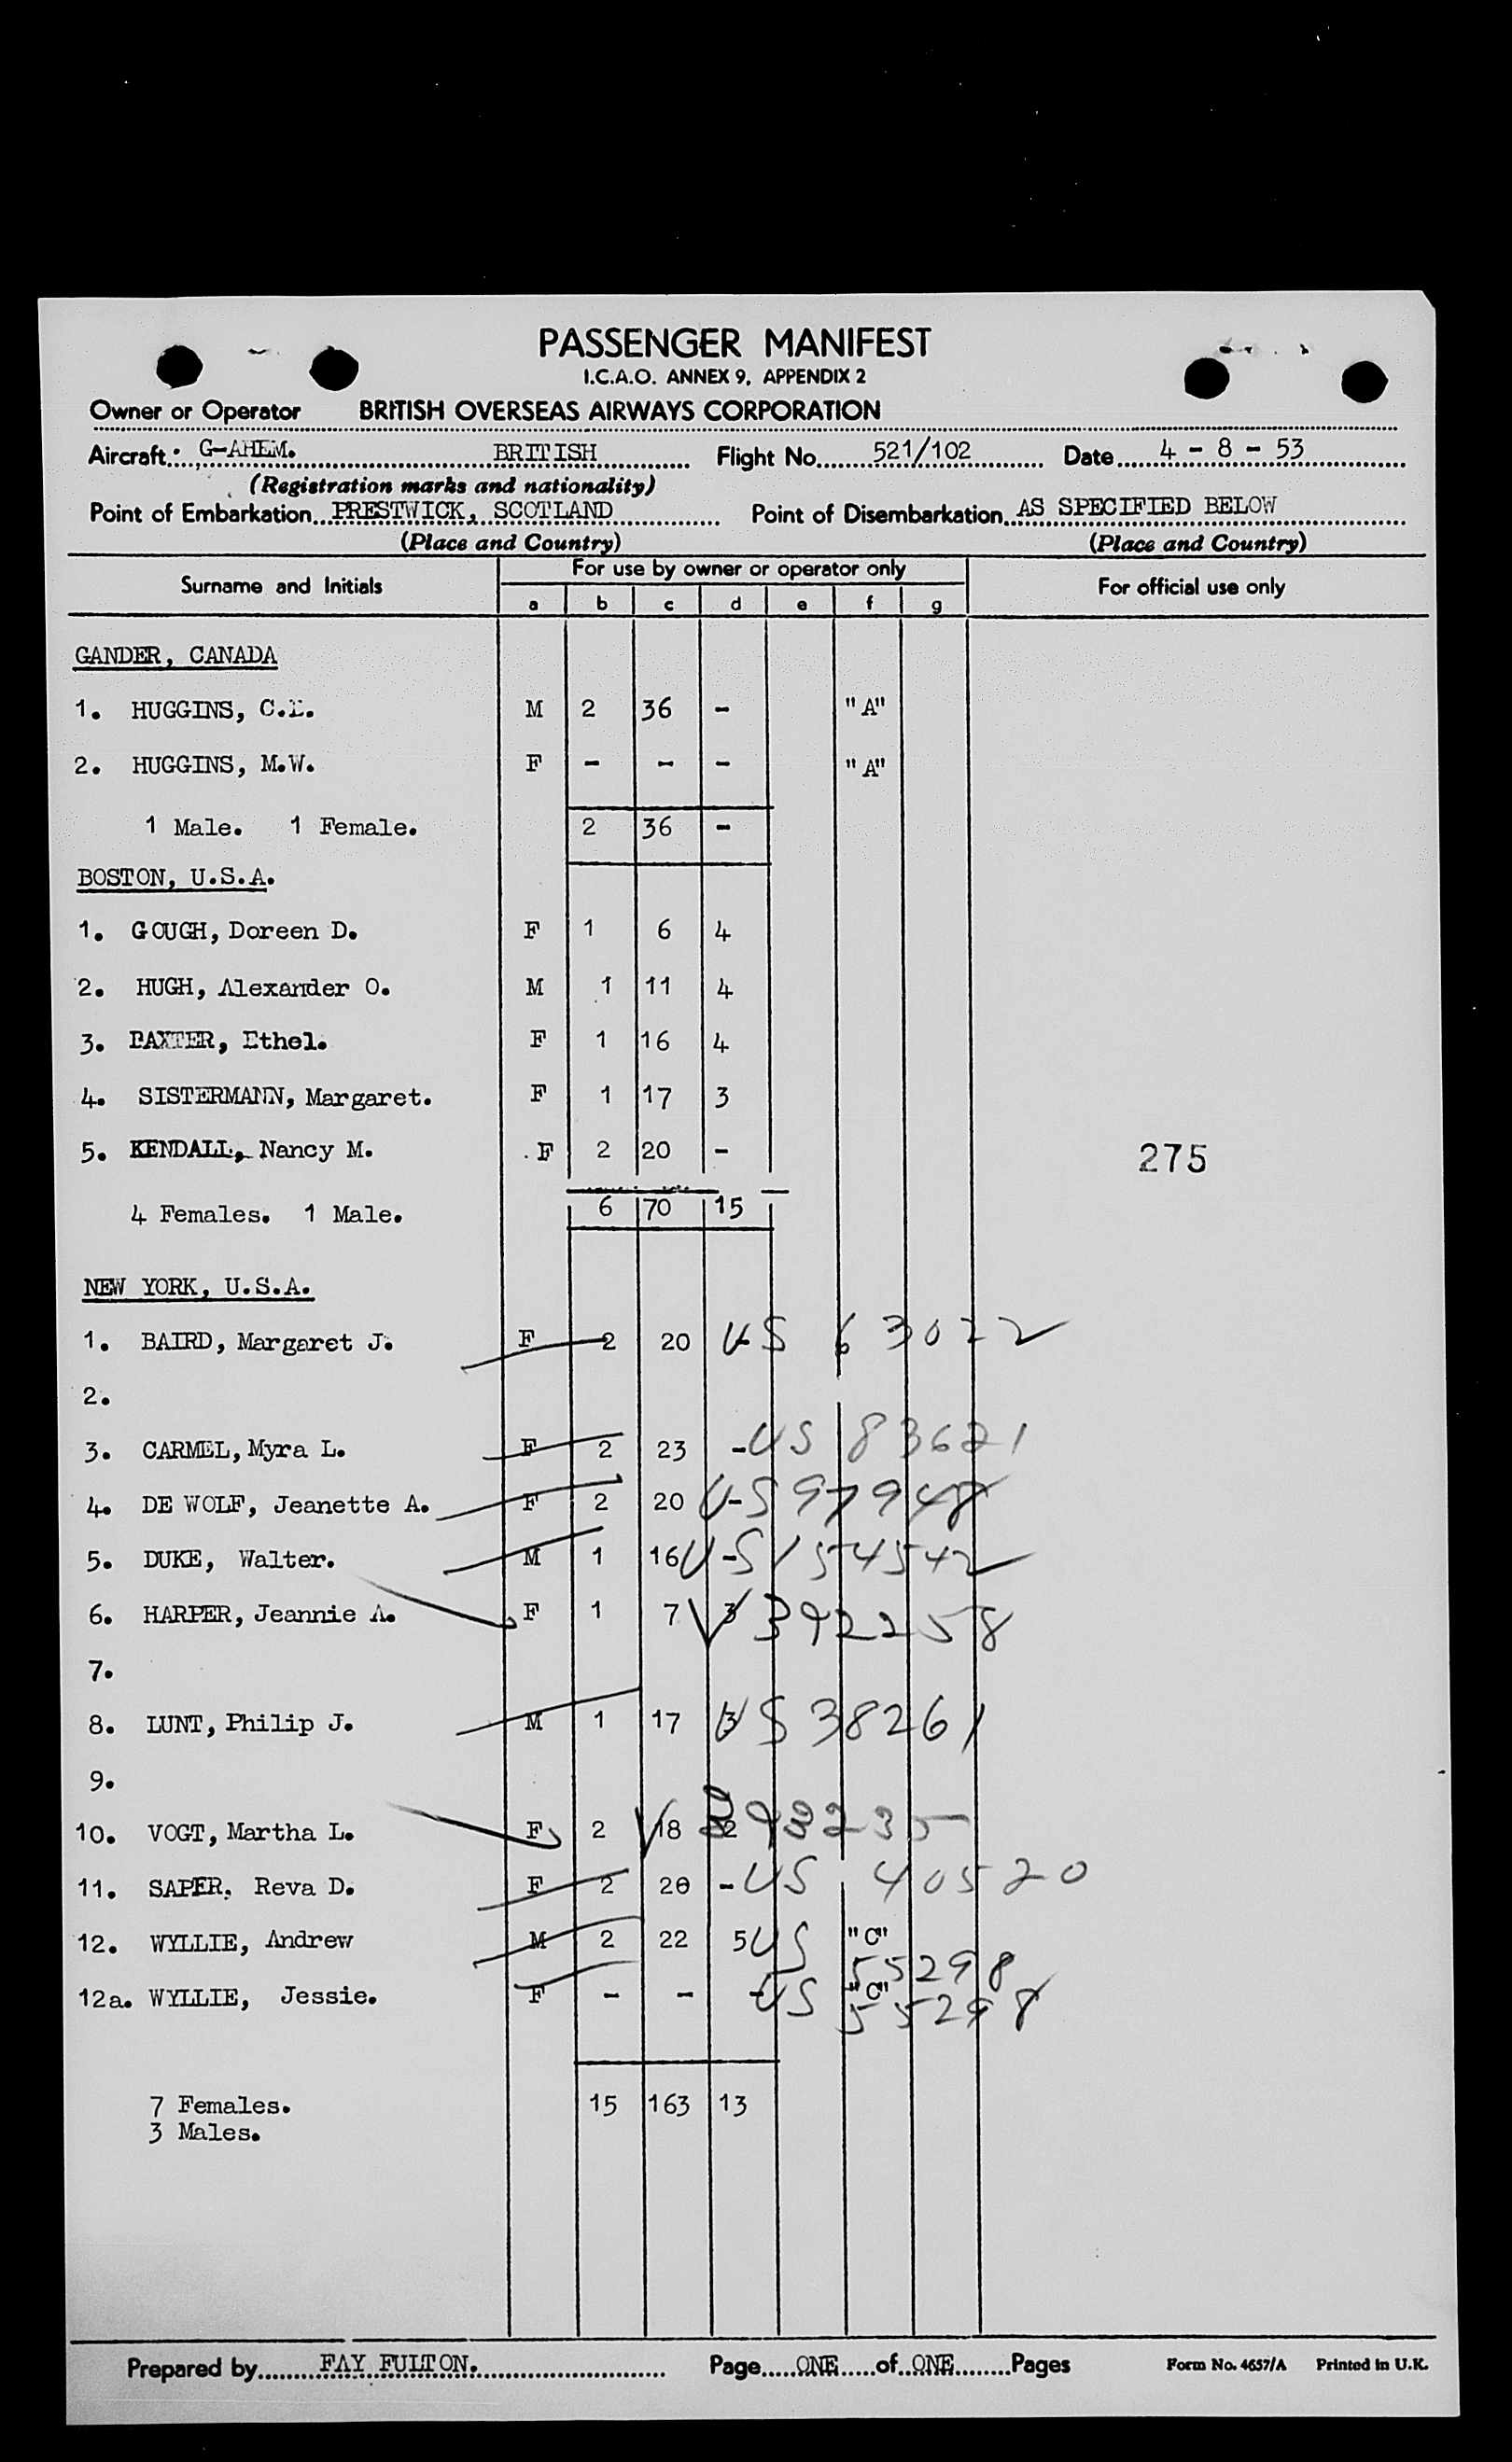 PASSENGER MANIFEST
I.C.A.O. ANNEX 9, APPENDIX 2
Owner or Operator BRITISH OVERSEAS AIRWAYS CORPORATION
Aircraft G-AHEM. BRITISH Flight No. 521/102 Date 4 - 8 - 53
(Registration marks and nationality)
Point of Embarkation PRESTWICK, SCOTLAND Point of Disembarkation AS SPECIFIED BELOW
(Place and Country) (Place and Country)
Surname and Initials For use by owner or operator only For official use only
a b c d e f g
GANDER, CANADA
1. HUGGINS, M 2 36 - "A"
2. HUGGINS, M.W. F - - - "A"
1 Male. 1 Female. 2 36 -
BOSTON, U.S.A.
1. GOUGH, Doreen D. F 1 6 4
2. HUGH, Alexander O. M 1 11 4
3. BAXTER, Ethel. F 1 16 4
4. SISTERMANN, Margaret. F 1 17 3
5. KENDALL, Nancy M. F 2 20 -
275
4 Females. 1 Male. 6 70 15
NEW YORK, U.S.A.
1. BAIRD, Margaret J. F 2 20 US 63022
2.
3. CARMEL, Myra L. F 2 23 - US 83621
4. DE WOLF, Jeanette A. F 2 20 - US 97948
5. DUKE, Walter. M 1 16 - US 154542
6. HARPER, Jeannie A. F 1 7 3 V 392258
7.
8. LUNT, Philip J. M 1 17 3 US 38261
9.
10. VOGT, Martha L. F 2 18 2 V 393235
11. SAPER, Reva D. F 2 20 - US 40520
12. WYLLIE, Andrew M 2 22 5 US "C" 55298
12a. WYLLIE, Jessie. F - - - US "C" 55298
7 Females. 15 163 13
3 Males.
Prepared by FAY FULTON. Page ONE of ONE Pages Form No. 4657/A Printed in U.K.